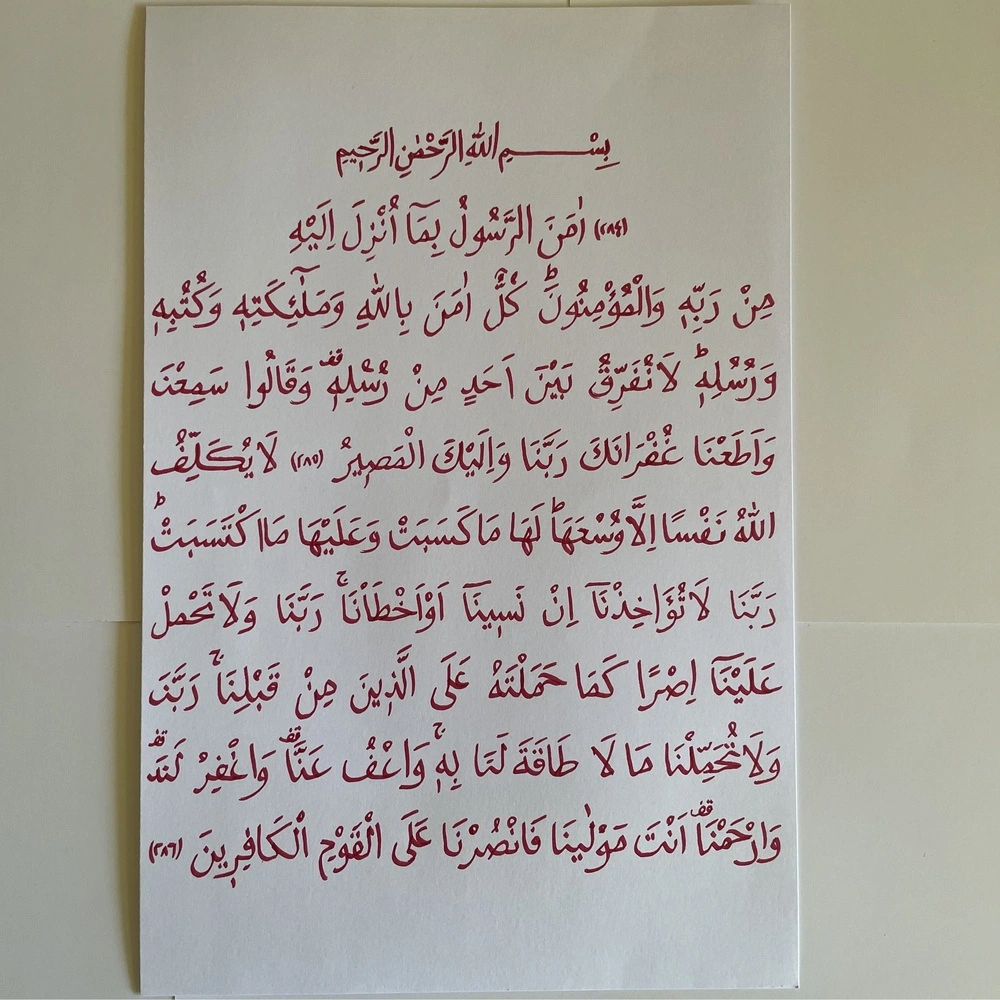 بِسْـــــــمِ اللّٰهِ الرَّحْمٰنِ الرَّحٖيمِ
(٢٨٤) اٰمَنَ الرَّسُولُ بِمَٓا اُنْزِلَ اِلَيْهِ
مِنْ رَبِّهٖ وَالْمُؤْمِنُونَؕ كُلٌّ اٰمَنَ بِاللّٰهِ وَمَلٰٓئِكَتِهٖ وَكُتُبِهٖ
وَرُسُلِهٖؕ لَا نُفَرِّقُ بَيْنَ اَحَدٍ مِنْ رُسُلِهٖ قف وَقَالُوا سَمِعْنَ
وَاَطَعْنَا غُفْرَانَكَ رَبَّنَا وَاِلَيْكَ الْمَصٖيرُ (٢٨٥) لَا يُكَلِّفُ
اللّٰهُ نَفْسًا اِلَّا وُسْعَهَاؕ لَهَا مَا كَسَبَتْ وَعَلَيْهَا مَا اكْتَسَبَتْؕ
رَبَّنَا لَا تُؤَاخِذْنَٓا اِنْ نَسٖينَٓا اَوْ اَخْطَأْنَاۚ رَبَّنَا وَلَا تَحْمِلْ
عَلَيْنَٓا اِصْرًا كَمَا حَمَلْتَهُ عَلَى الَّذٖينَ مِنْ قَبْلِنَاۚ رَبَّنَ
وَلَا تُحَمِّلْنَا مَا لَا طَاقَةَ لَنَا بِهٖۚ وَاعْفُ عَنَّا قف وَاغْفِرْ لَنَا قف
وَارْحَمْنَا قف اَنْتَ مَوْلٰينَا فَانْصُرْنَا عَلَى الْقَوْمِ الْكَافِرٖينَ (٢٨٦)